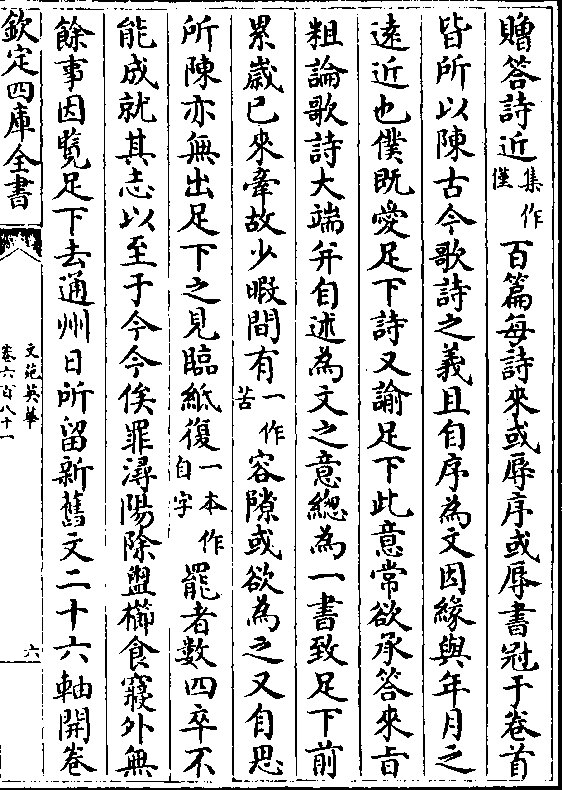 贈答詩近集作僅百篇每詩來或辱序或辱書冠于卷首
皆所以陳古今歌詩之義且自序為文因縁與年月之
遠近也僕既愛足下詩又諭足下此意常欲承答來㫖
粗論歌詩大端并自述為文之意緫為一書致足下前
累嵗已來牽故少暇間有一作苦容隙或欲為之又自思
所陳亦無出足下之見臨紙復一本作自字罷者數四卒不
能成就其志以至于今今俟罪潯陽除盥櫛食寢外無
餘事因覽足下去通州日所留新舊文二十六軸開卷
欽定四庫全書
文苑英華
卷六百八十一
六